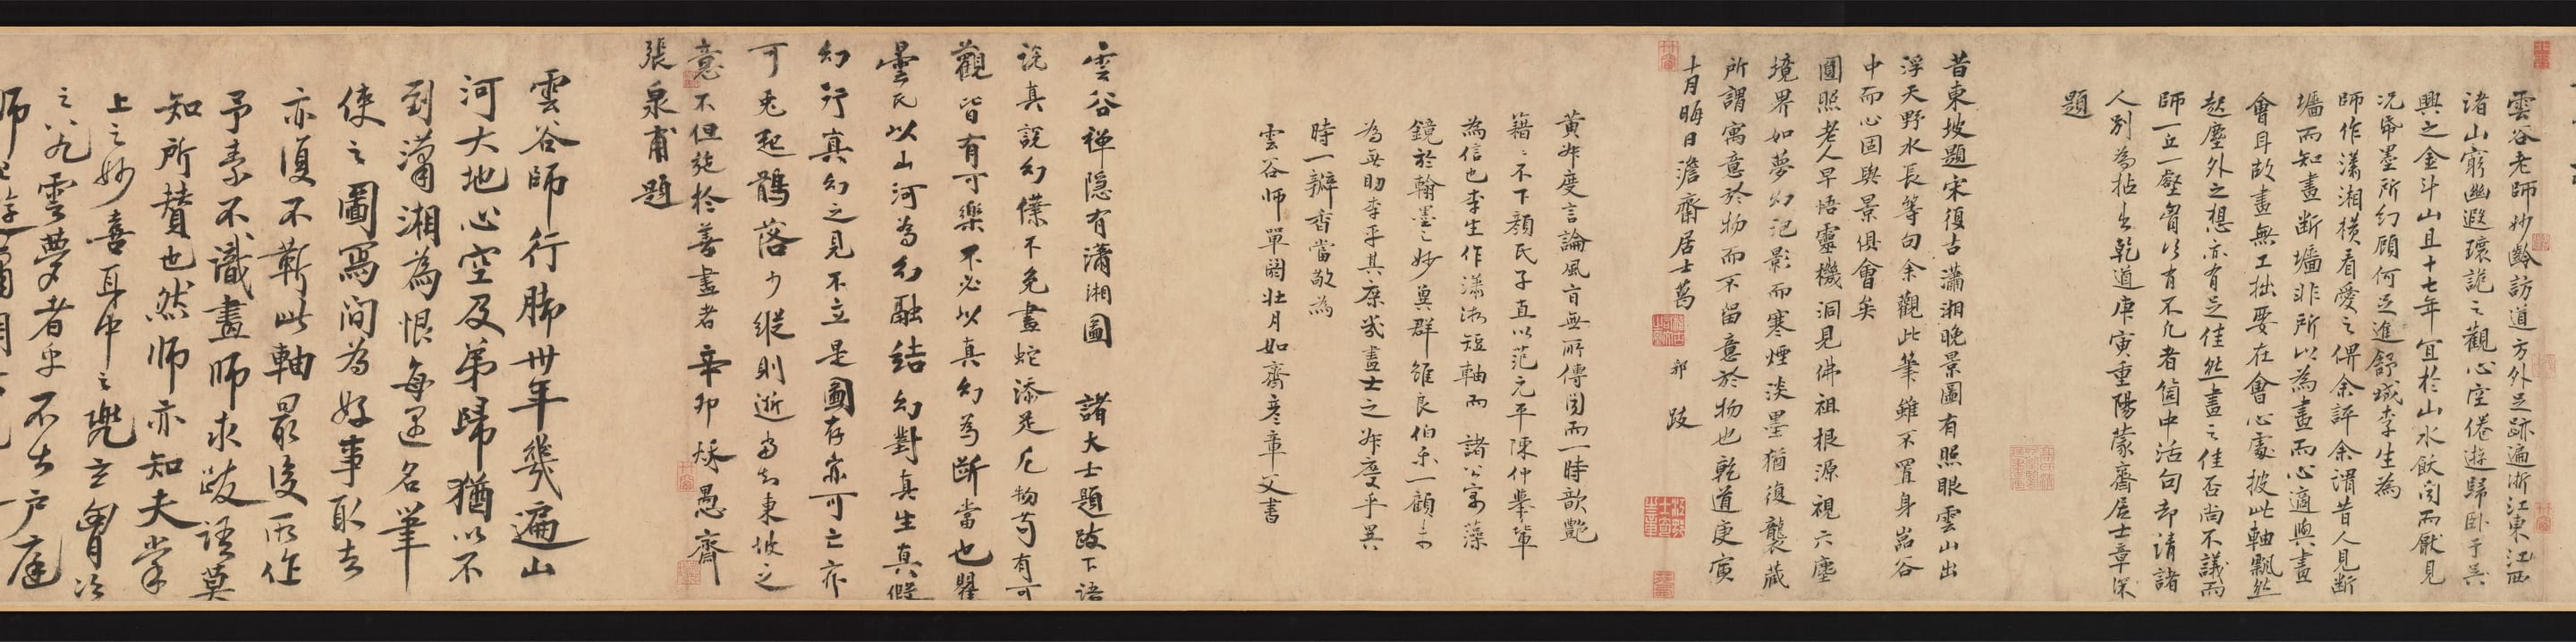 雲谷老師妙齡訪道方外足跡遍浙江東江西
諸山窮幽遐瓌詭之觀心空倦遊歸臥于吳
興之金斗山且十七年宜於山水飫聞而厭見
況縑墨所幻顧何足進舒城李生為
師作瀟湘橫看愛之俾余評余謂昔人見斷
墻而知畫斷墻非所以為畫而心適與畫
會耳故畫無工拙要在會心處披此軸飄然
起塵外之想亦有足佳然畫之佳否尚不議而
師一丘一壑胸次有不凡者箇中活句却請諸
人別為拈出乾道庚寅重陽蒙齋居士章深
題
昔東坡題宋復古瀟湘晚景圖有照眼雲山出
浮天野水長等句余觀此筆雖不置身嵓谷
中而心固與景俱會矣
圓照老人早悟靈機洞見佛祖根源視六塵
境界如夢幻泡影而寒煙淡墨猶復襲藏
所謂寓意於物而不留意於物也乾道庚寅
十月晦日澹齋居士葛 郯 跋
黃叔度言論風旨無所傳聞而一時歆艷
籍籍不下顏氏子直以范元平陳仲舉輩
為信也李生作瀟湘短軸而 諸公寓藻
鏡於翰墨之妙冀群雖良伯樂一顧
為無助李乎其庶幾畫士之叔度乎異
時一瓣香當敬為
雲谷師 單閼壯月如齋彥章父書
雲谷禪隱有瀟湘圖 諸大士題跋下語
說真說幻僕不免畫蛇添足凡物苟有可
觀皆有可樂不必以真幻為斷當也瞿
曇氏以山河為幻融結幻對真生真假
幻行真幻之見不立是圖存亦可亡亦
可兎起鶻落少縱則逝當知東坡之
意不但施於善畫者辛卯 愚齋
張泉甫題
雲谷師行脚卅年幾遍山
河大地心空及第歸猶以不
到瀟湘為恨每遇名筆
使之圖寫間為好事取去
亦復不蘄此軸最後所作
予素不識畫師求跋語莫
知所贊也然師亦知夫掌
上之妙喜耳中之兜玄胸次
之八九雲夢者乎不出戶庭